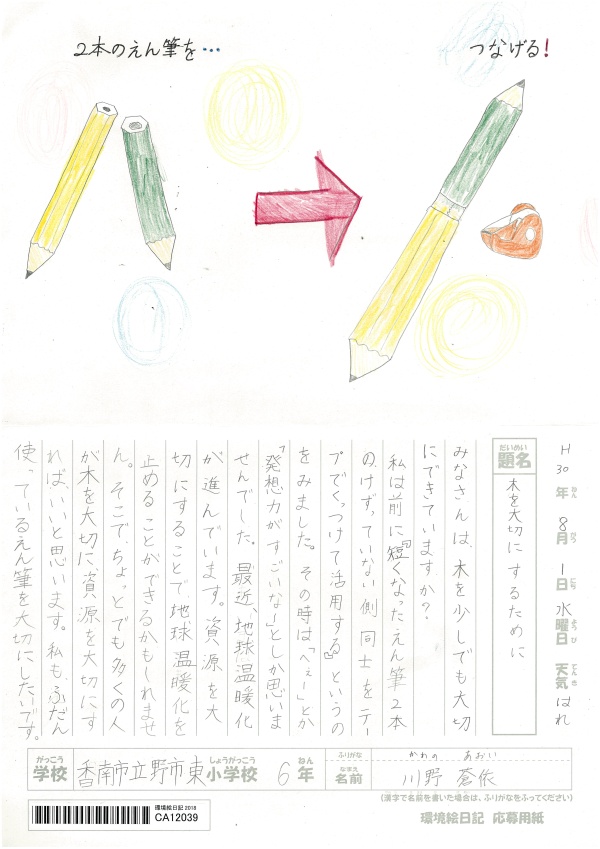 2本のえん筆を…
つなげる!
H30年8月1日水曜日 天気はれ
ねん がつ にち ようび てんき
だいめい
題名
木を大切にするために
みなさんは、木を少しでも大切
にできていますか?
私は前に『短くなったえん筆2本
の、けずっていない側同士をテー
プでくっつけて活用する』というの
をみました。その時は「へぇー」とか
「発想力がすごいな」としか思いま
せんでした。最近、地球温暖化
が進んでいます。資源を大
切にすることで、地球温暖化を
止めることができるかもしれませ
ん。そこで、ちょっとでも多くの人
が木を大切に、資源を大切にす
ればいいと思います。私も、ふだん
使っているえん筆を大切にしたいです。
がっこう しょうがっこう ねん
学校 香南市立野市東小学校 6年
ふりがな かわの あおい
なまえ
名前 川野 蒼依
(漢字で名前を書いた場合は、ふりがなをふってください)
環境絵日記 2018
CA12039
環境絵日記 応募用紙